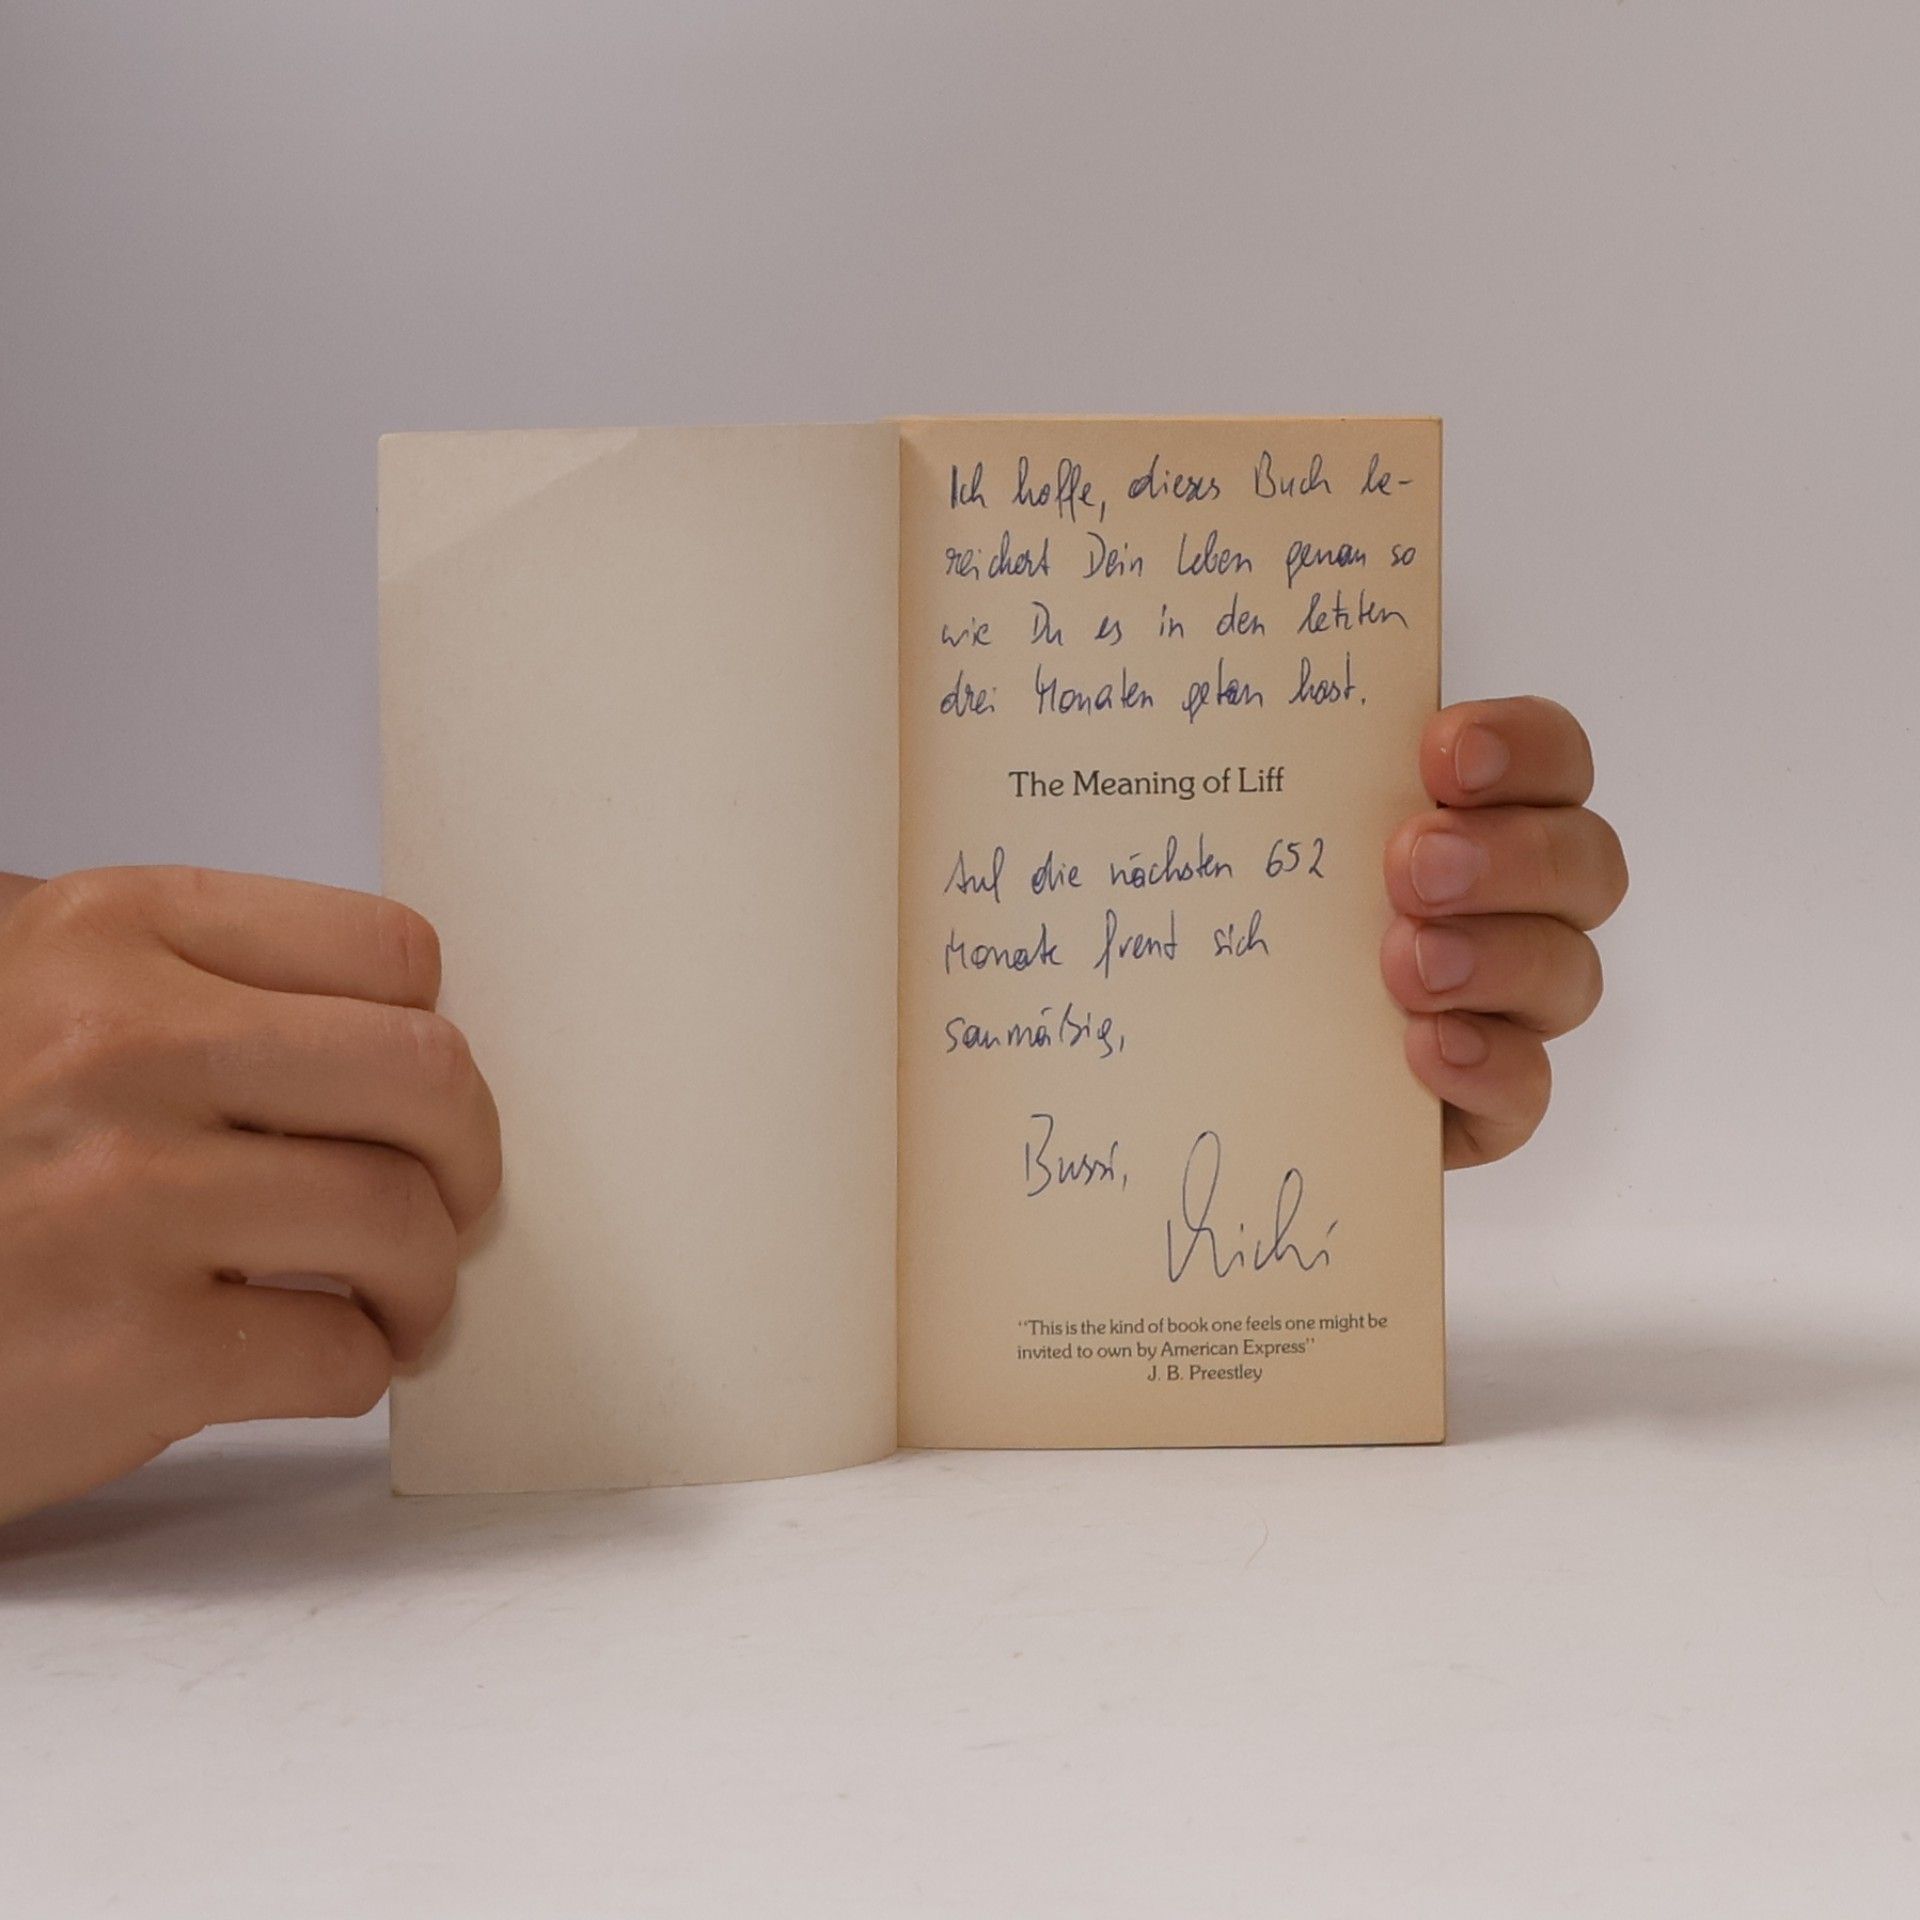 Ich hoffe, dieses Buch be-
reichert Dein Leben genau so
wie Du es in den letzten
drei Monaten getan hast.
The Meaning of Liff
Auf die nächsten 652
Monate freut sich
saumäßig,
Bussi,
Michi
“This is the kind of book one feels one might be
invited to own by American Express”
J. B. Preestley